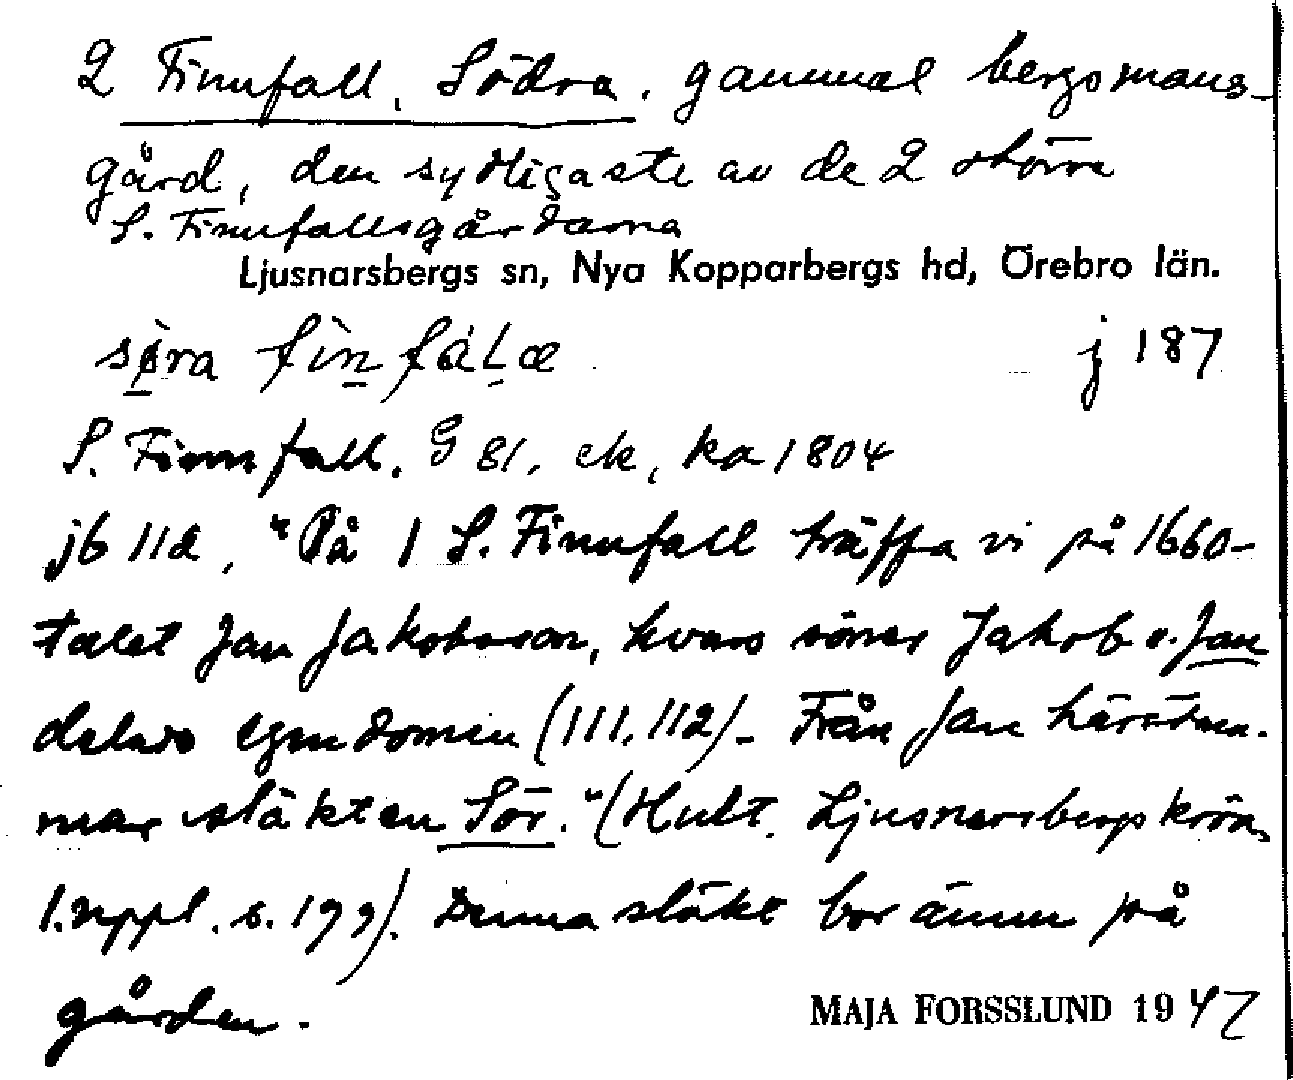 2 Finnfall, Södra, gammal bergsmans-
gård, den sydligaste av de 2 större
S. Finnfallsgårdarna
Ljusnarsbergs sn, Nya Kopparbergs hd, Örebro län.
sø̀ra fìnfáLæ j 187
S. Finnfall. G 81, ek, ka 1804
jb 112, "På 1 S. Finnfall träffa vi på 1660-
talet Jan Jakobsson, hvars söner Jakob o. Jan
delade egendomen (111, 112)- Från Jan härstam-
mar släkten Sör." (Hult. Ljusnarsbergs krön.
1. uppl. s. 199). Denna släkt bor ännu på
gården.
MAJA FORSSLUND 1947